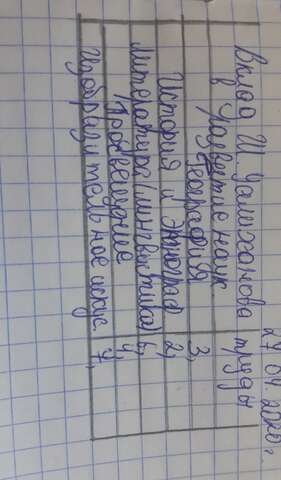 27 04 2020 г.
Вклад Ш. Уалиханова труды
в развитие наук
География 3,
История и этнограф 2,
Литература (линвистика) 5,
Просвещение 4,
Изобразительное искус. 7,